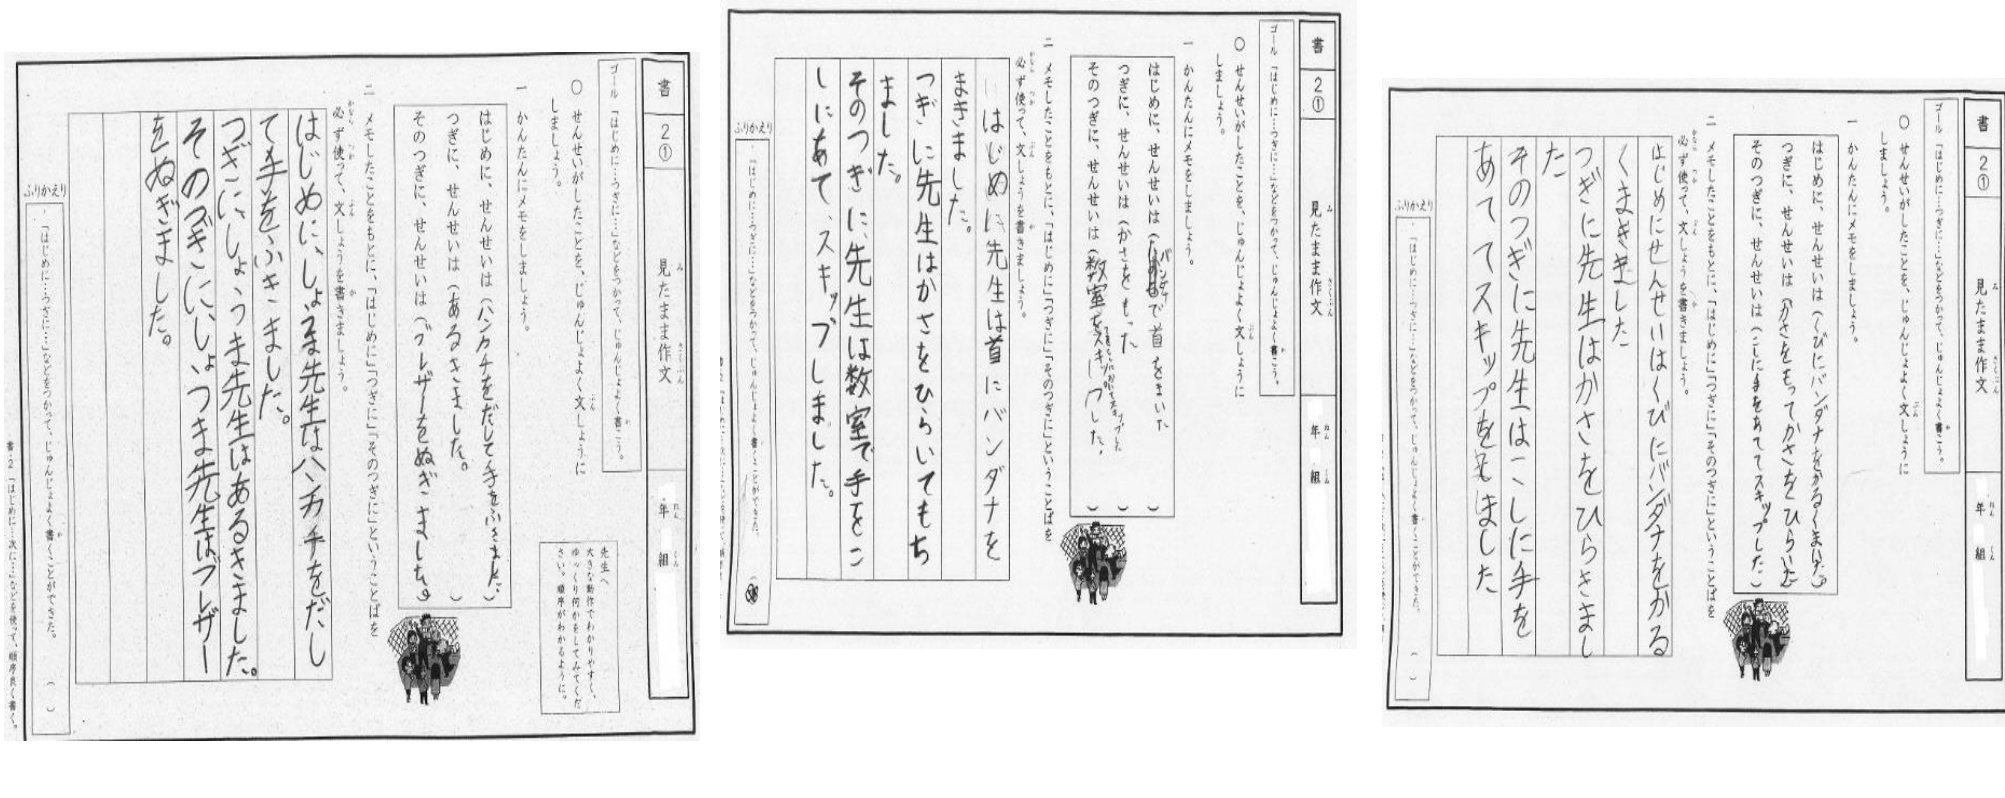 書
2①
見たまま作文
年 組
ゴール 「はじめに…つぎに…」などをつかって、じゅんじょよく書こう。
○ せんせいがしたことを、じゅんじょよく文しょうに
しましょう。
一 かんたんにメモをしましょう。
はじめに、せんせいは(ハンカチをだして手をふきました)
つぎに、せんせいは(あるきました。)
そのつぎに、せんせいは(ブレザーをぬぎました。)
先生へ
大きな動作でわかりやすく、
ゆっくり何かをしてみてくだ
さい。順序がわかるように。
二 メモしたことをもとに、「はじめに」「つぎに」「そのつぎに」ということばを
必ず使って、文しょうを書きましょう。
はじめに、しょうつま先生はハンカチをだし
て手をふきました。
つぎに、しょうつま先生はあるきました。
そのつぎに、しょうつま先生はブレザー
をぬぎました。
ふりかえり
・「はじめに…つぎに…」などをつかって、じゅんじょよく書くことができた。( )
書-2「はじめに…次に…」などを使って、順序良く書く。
書
2①
見たまま作文
年 組
ゴール 「はじめに…つぎに…」などをつかって、じゅんじょよく書こう。
○ せんせいがしたことを、じゅんじょよく文しょうに
しましょう。
一 かんたんにメモをしましょう。
はじめに、せんせいは(バンダナで首をまいた)
つぎに、せんせいは(かさをもった)
そのつぎに、せんせいは(教室をスキップした。)
二 メモしたことをもとに、「はじめに」「つぎに」「そのつぎに」ということばを
必ず使って、文しょうを書きましょう。
はじめに先生は首にバンダナを
まきました。
つぎに先生はかさをひらいてもち
ました。
そのつぎに、先生は教室で手をこ
しにあて、スキップしました。
ふりかえり
・「はじめに…つぎに…」などをつかって、じゅんじょよく書くことができた。
書
2①
見たまま作文
年 組
ゴール 「はじめに…つぎに…」などをつかって、じゅんじょよく書こう。
○ せんせいがしたことを、じゅんじょよく文しょうに
しましょう。
一 かんたんにメモをしましょう。
はじめに、せんせいは(くびにバンダナをかるくまいた)
つぎに、せんせいは(かさをもってかさをひらいた)
そのつぎに、せんせいは(こしに手をあててスキップした)
二 メモしたことをもとに、「はじめに」「つぎに」「そのつぎに」ということばを
必ず使って、文しょうを書きましょう。
はじめにせんせいはくびにバンダナをかる
くまきました
つぎに先生はかさをひらきまし
た
そのつぎに先生はこしに手を
あててスキップをしました
ふりかえり
・「はじめに…つぎに…」などをつかって、じゅんじょよく書くことができた。( )